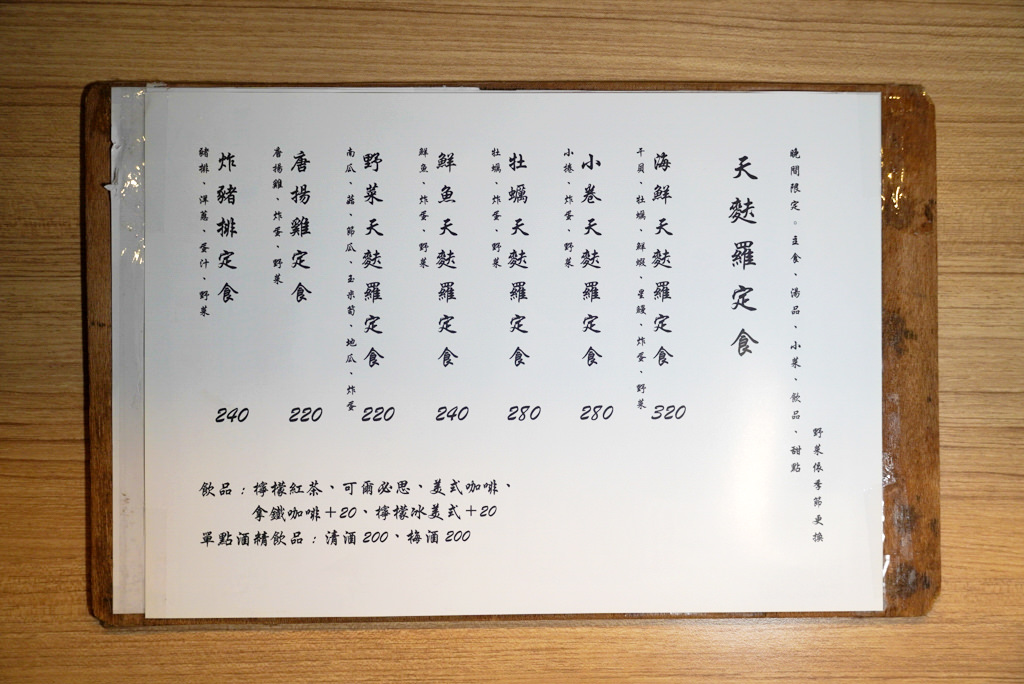 野菜依季節更換
晚間限定。主食、湯品、小菜、飲品、甜點
天麩羅定食
海鮮天麩羅定食 320
干貝、牡蠣、鮮蝦、星鰻、炸蛋、野菜
小卷天麩羅定食 280
小捲、炸蛋、野菜
牡蠣天麩羅定食 280
牡蠣、炸蛋、野菜
鮮魚天麩羅定食 240
鮮魚、炸蛋、野菜
野菜天麩羅定食 220
南瓜、菇、節瓜、玉米筍、地瓜、炸蛋
唐揚雞定食 220
唐揚雞、炸蛋、野菜
炸豬排定食 240
豬排、洋蔥、蛋汁、野菜
飲品:檸檬紅茶、可爾必思、美式咖啡、
拿鐵咖啡+20、檸檬冰美式+20
單點酒精飲品:清酒200、梅酒200